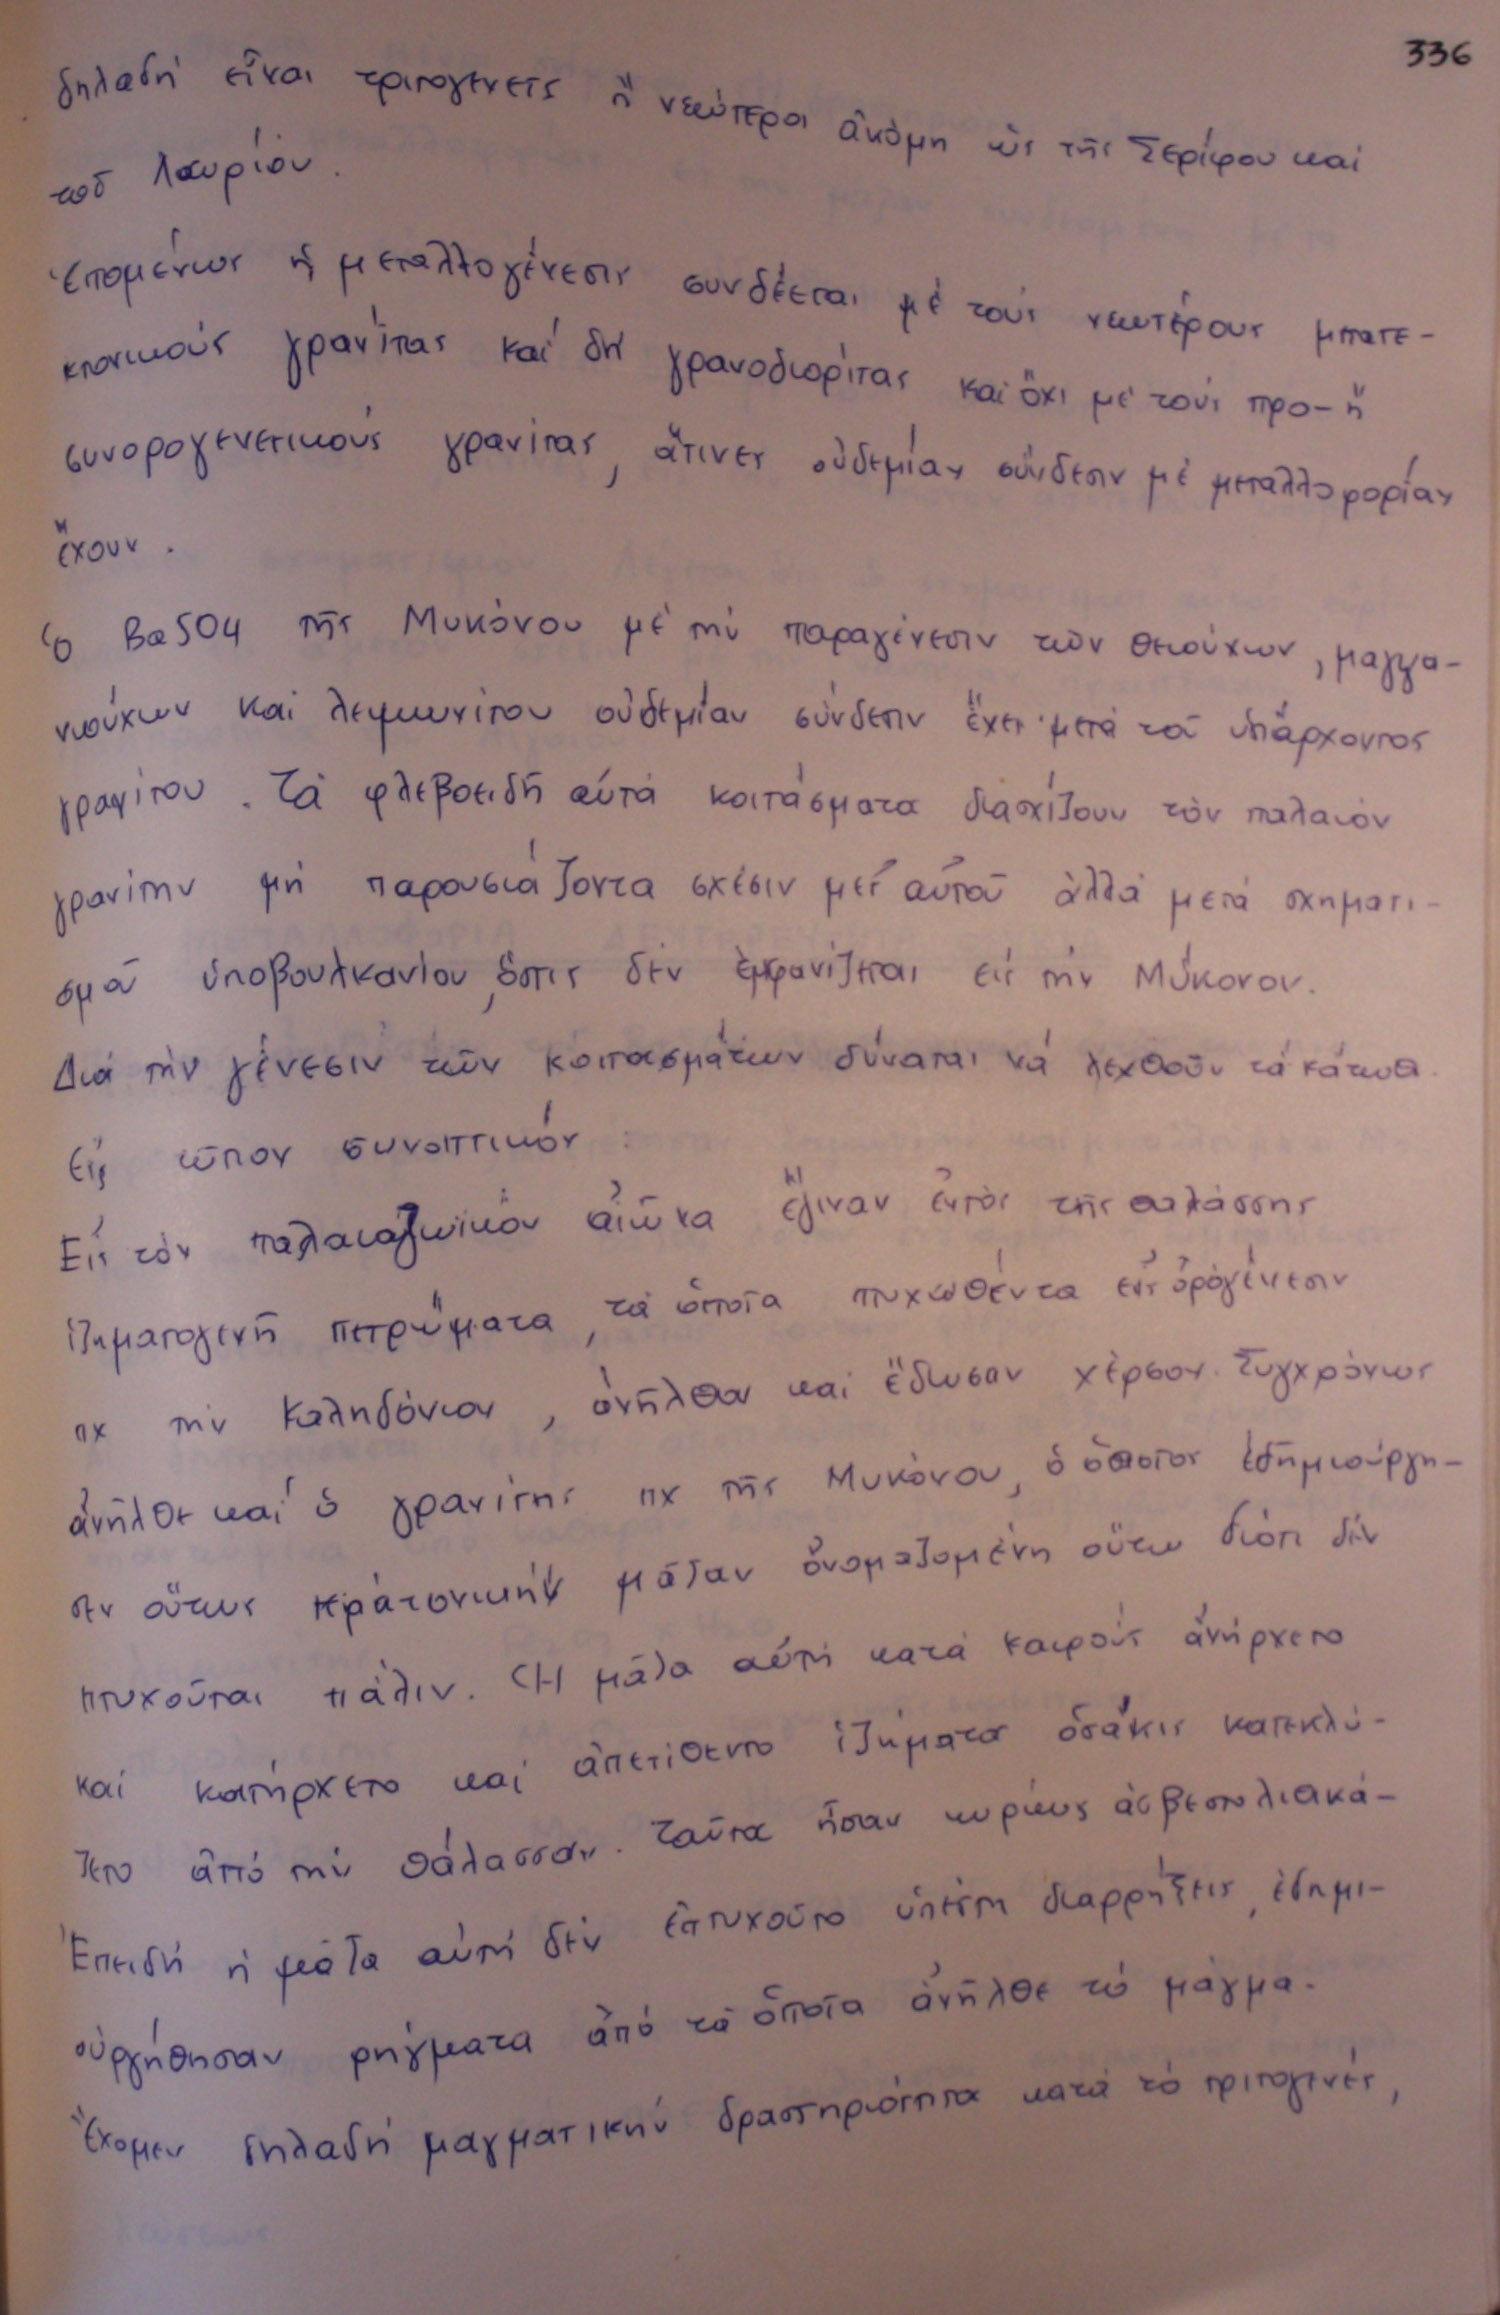 336
δηλαδή εἶναι τριτογενεῖς ἤ νεώτεροι ἀκόμη ὡς τῆς Σερίφου καί
τοῦ Λαυρίου.
Ἑπομένως ἡ μεταλλογένεσις συνδέεται μέ τούς νεωτέρους μετατε-
κτονικούς γρανίτας καί δή γρανοδιορίτας καί ὄχι μέ τούς προ- ἤ
συνορογενετικούς γρανίτας, ἅτινες οὐδεμίαν σύνδεσιν μέ μεταλλοφορίαν
ἔχουν.
Ὁ BaSO4 τῆς Μυκόνου μέ τήν παραγένεσιν τῶν θειούχων, μαγγα-
νιούχων καί λειμωνίτου οὐδεμίαν σύνδεσιν ἔχει μετά τοῦ ὑπάρχοντος
γρανίτου. Τά φλεβοειδῆ αὐτά κοιτάσματα διασχίζουν τόν παλαιόν
γρανίτην μή παρουσιάζοντα σχέσιν μετ' αὐτοῦ ἀλλά μετά σχηματι-
σμοῦ ὑποβουλκανίου, ὅστις δέν ἐμφανίζεται εἰς τήν Μύκονον.
Διά τήν γένεσιν τῶν κοιτασμάτων δύναται νά λεχθοῦν τά κάτωθι
Εἰς τύπον συνοπτικόν:
Εἰς τόν παλαιοζωϊκόν αἰῶνα ἔγιναν ἐντός τῆς θαλάσσης
ἰζηματογενῆ πετρώματα, τά ὁποῖα πτυχωθέντα εἰς ὀρογένεσιν
πχ τήν Καληδόνιον, ἀνῆλθον καί ἔδωσαν χέρσον. Συγχρόνως
ἀνῆλθε καί ὁ γρανίτης πχ τῆς Μυκόνου, ὁ ὁποῖος ἐδημιούργη-
σεν οὕτως κρατονικήν μᾶζαν ὀνομαζομένη οὕτω διότι δέν
πτυχοῦται πάλιν. Ἡ μᾶζα αὐτή κατά καιρούς ἀνήρχετο
καί κατήρχετο καί ἀπετίθεντο ἰζήματα ὁσάκις κατεκλύ-
ζετο ἀπό τήν θάλασσαν. Ταῦτα ἦσαν κυρίως ἀσβεστολιακά-
Ἐπειδή ἡ μᾶζα αὐτή δέν ἐπτυχοῦτο ὑπέστη διαρρήξεις, ἐδημι-
ουργήθησαν ρήγματα ἀπό τά ὁποῖα ἀνῆλθε τό μάγμα.
Ἔχομεν δηλαδή μαγματικήν δραστηριότητα κατά τό τριτογενές,